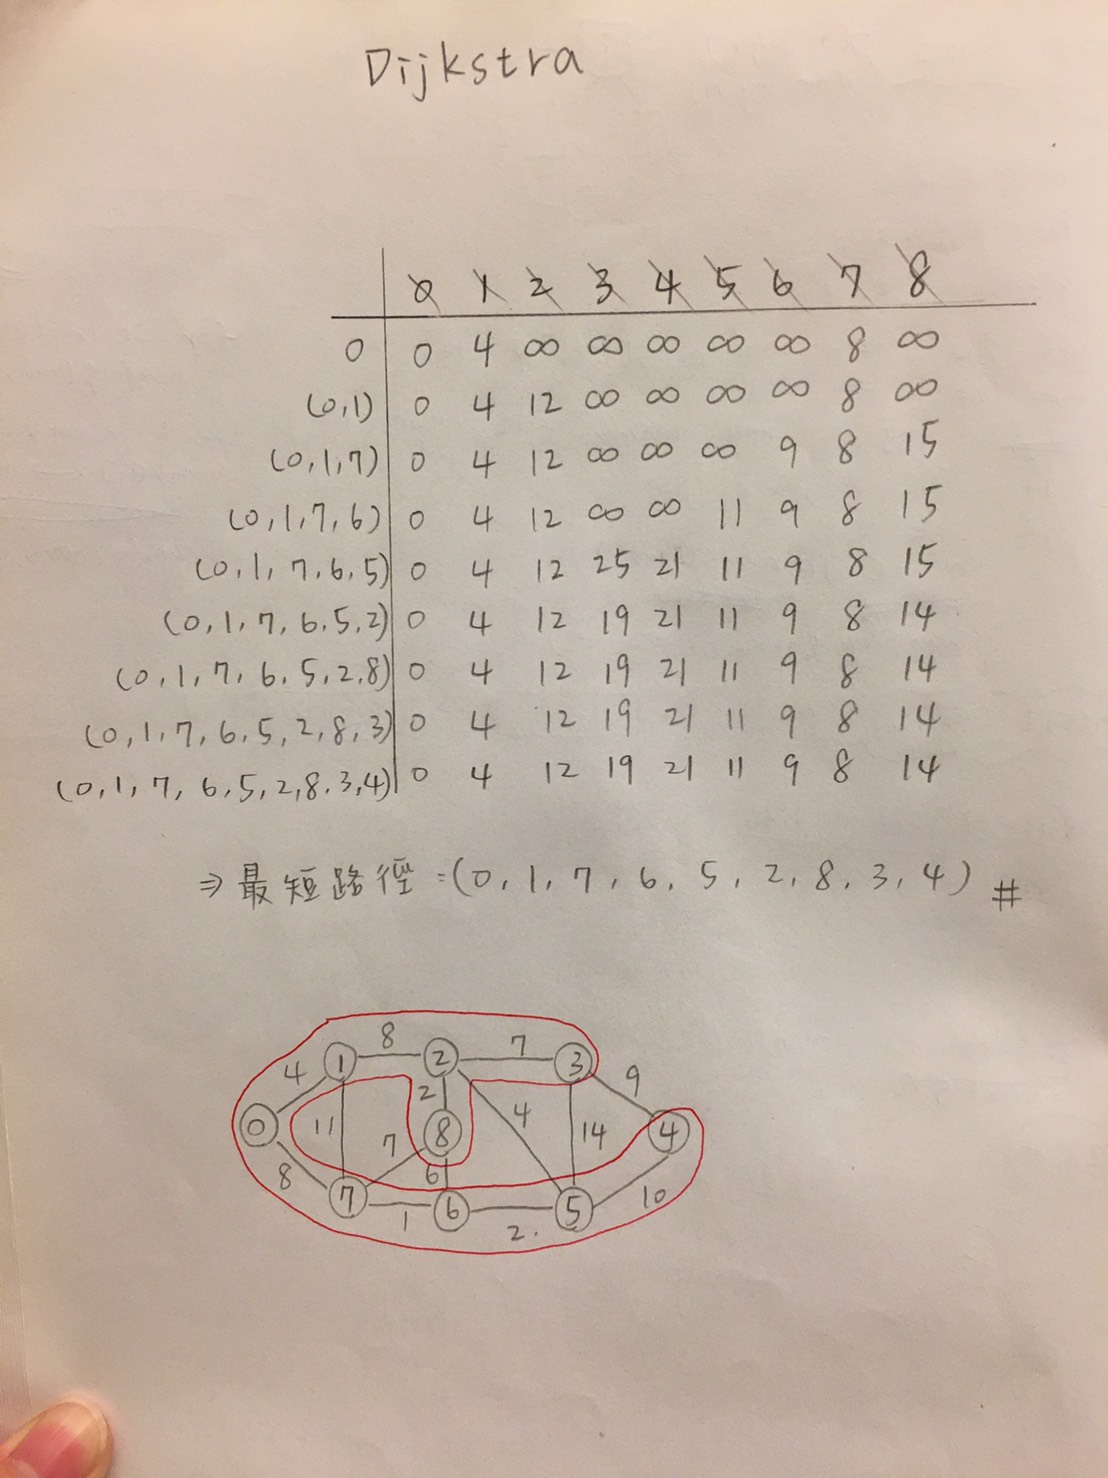 Dijkstra
0 1 2 3 4 5 6 7 8
0 0 4 ∞ ∞ ∞ ∞ ∞ 8 ∞
(0,1) 0 4 12 ∞ ∞ ∞ ∞ 8 ∞
(0,1,7) 0 4 12 ∞ ∞ ∞ 9 8 15
(0,1,7,6) 0 4 12 ∞ ∞ 11 9 8 15
(0,1,7,6,5) 0 4 12 25 21 11 9 8 15
(0,1,7,6,5,2) 0 4 12 19 21 11 9 8 14
(0,1,7,6,5,2,8) 0 4 12 19 21 11 9 8 14
(0,1,7,6,5,2,8,3) 0 4 12 19 21 11 9 8 14
(0,1,7,6,5,2,8,3,4) 0 4 12 19 21 11 9 8 14
⇒ 最短路徑:(0,1,7,6,5,2,8,3,4) #
8 7
1 2 3
4 2 9
0 11 7 8 4 14 4
8 6 10
7 1 6 2. 5